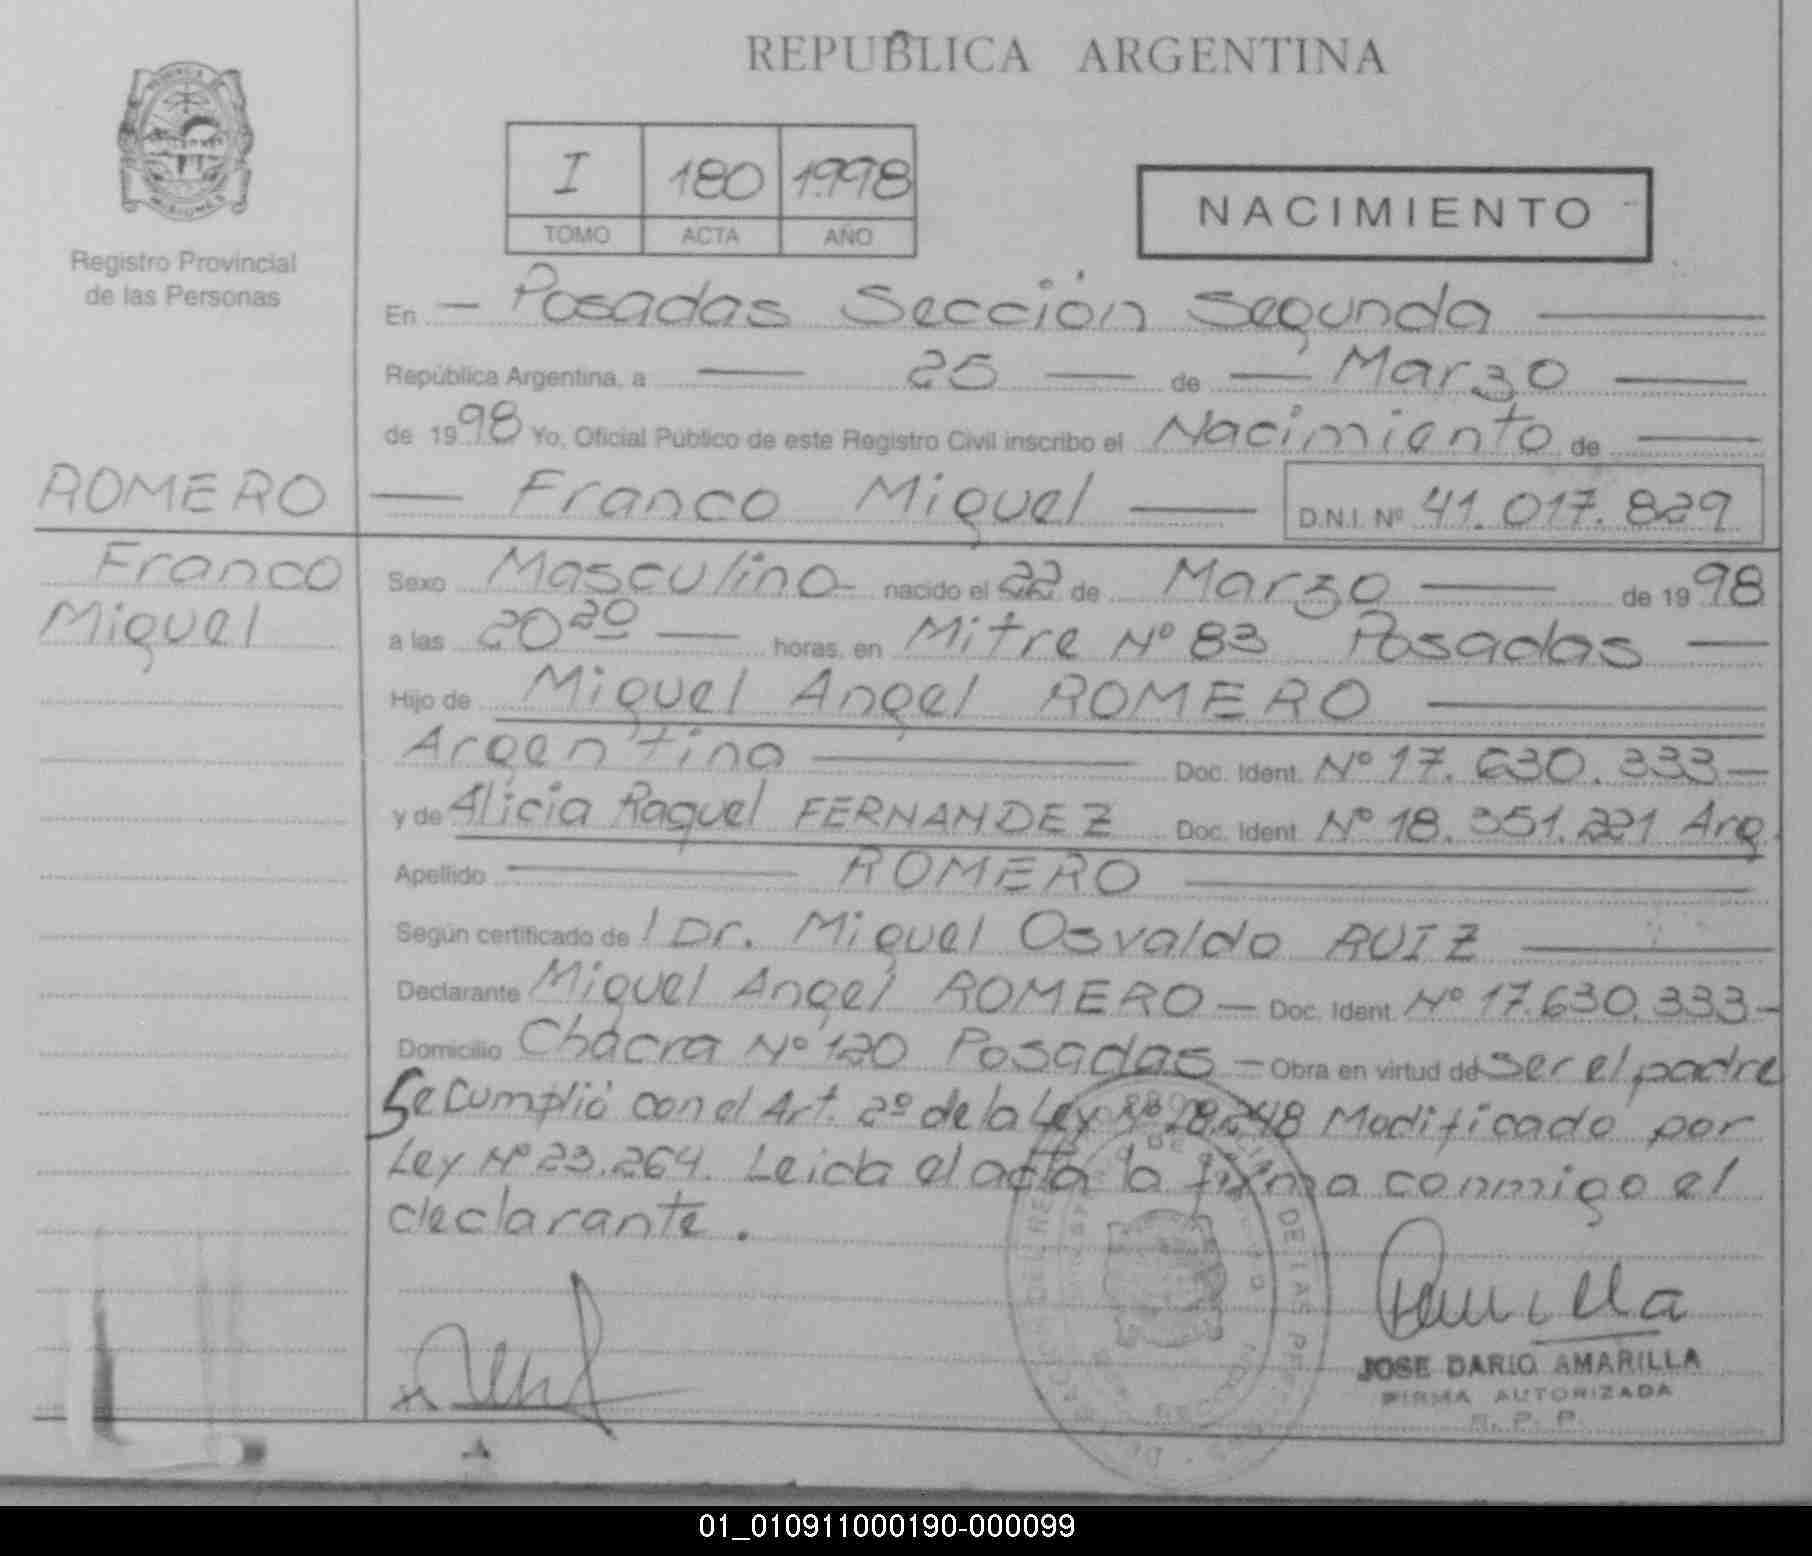 REPUBLICA ARGENTINA
MISIONES
Registro Provincial
de las Personas
I 180 1998
TOMO ACTA AÑO
NACIMIENTO
En — Posadas Sección Segunda —
República Argentina, a — 25 — de — Marzo —
de 1998 Yo, Oficial Público de este Registro Civil inscribo el Nacimiento de —
ROMERO — Franco Miguel — D.N.I. Nº 41.017.829
Franco
Miguel
Sexo Masculino - nacido el 22 de Marzo — de 1998
a las 20 20 — horas, en Mitre Nº 83 Posadas —
Hijo de Miguel Angel ROMERO —
Argentino — Doc. Ident. Nº 17.630.333 —
y de Alicia Raquel FERNANDEZ Doc. Ident. Nº 18.351.221 Arg.
Apellido — ROMERO —
Según certificado de / Dr. Miguel Osvaldo RUIZ —
Declarante Miguel Angel ROMERO — Doc. Ident. Nº 17.630.333 -
Domicilio Chacra Nº 120 Posadas — Obra en virtud de ser el padre
Se Cumplió con el Art. 2º de la Ley Nº 18.248 Modificado por
Ley Nº 23.264. Leida el acta la firma conmigo el
declarante.
JOSE DARIO AMARILLA
FIRMA AUTORIZADA
R. P. P.
01_010911000190-000099